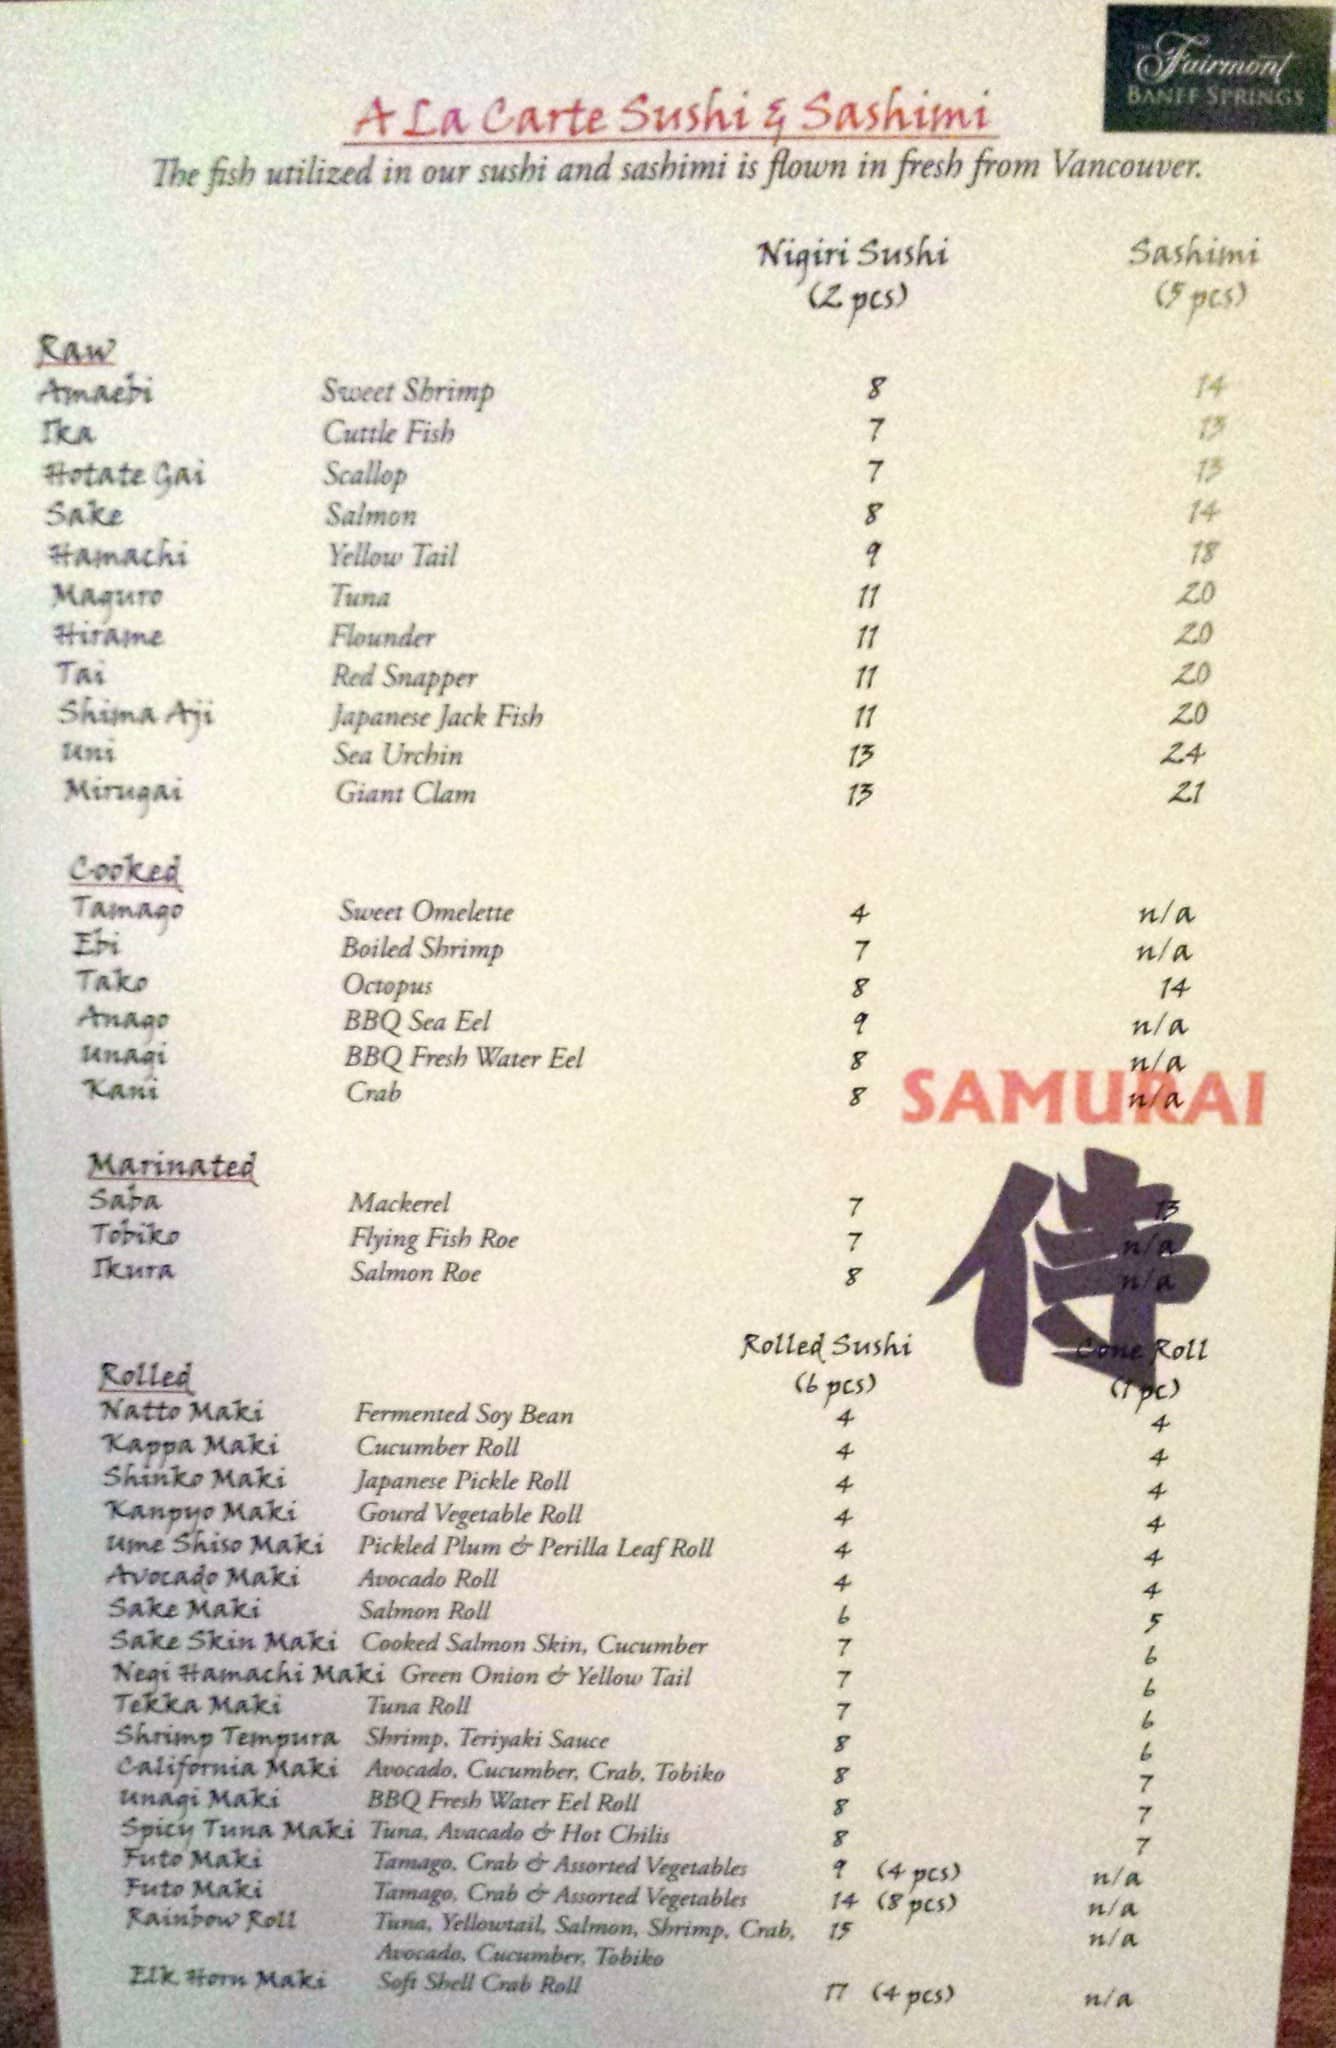 The Fairmont
BANFF SPRINGS
A La Carte Sushi & Sashimi
The fish utilized in our sushi and sashimi is flown in fresh from Vancouver.
Nigiri Sushi Sashimi
(2 pcs) (5 pcs)
Raw
Amaebi Sweet Shrimp 8 14
Ika Cuttle Fish 7 13
Hotate Gai Scallop 7 13
Sake Salmon 8 14
Hamachi Yellow Tail 9 18
Maguro Tuna 11 20
Hirame Flounder 11 20
Tai Red Snapper 11 20
Shima Aji Japanese Jack Fish 11 20
Uni Sea Urchin 13 24
Mirugai Giant Clam 13 21
Cooked
Tamago Sweet Omelette 4 n/a
Ebi Boiled Shrimp 7 n/a
Tako Octopus 8 14
Anago BBQ Sea Eel 9 n/a
Unagi BBQ Fresh Water Eel 8 n/a
Kani Crab 8 n/a
SAMURAI
侍
Marinated
Saba Mackerel 7 13
Tobiko Flying Fish Roe 7 n/a
Ikura Salmon Roe 8 n/a
Rolled Sushi Cone Roll
Rolled (6 pcs) (1 pc)
Natto Maki Fermented Soy Bean 4 4
Kappa Maki Cucumber Roll 4 4
Shinko Maki Japanese Pickle Roll 4 4
Kanpyo Maki Gourd Vegetable Roll 4 4
Ume Shiso Maki Pickled Plum & Perilla Leaf Roll 4 4
Avocado Maki Avocado Roll 4 4
Sake Maki Salmon Roll 6 5
Sake Skin Maki Cooked Salmon Skin, Cucumber 7 6
Negi Hamachi Maki Green Onion & Yellow Tail 7 6
Tekka Maki Tuna Roll 7 6
Shrimp Tempura Shrimp, Teriyaki Sauce 8 6
California Maki Avocado, Cucumber, Crab, Tobiko 8 7
Unagi Maki BBQ Fresh Water Eel Roll 8 7
Spicy Tuna Maki Tuna, Avacado & Hot Chilis 8 7
Futo Maki Tamago, Crab & Assorted Vegetables 9 (4 pcs) n/a
Futo Maki Tamago, Crab & Assorted Vegetables 14 (8 pcs) n/a
Rainbow Roll Tuna, Yellowtail, Salmon, Shrimp, Crab, 15 n/a
Avocado, Cucumber, Tobiko
Elk Horn Maki Soft Shell Crab Roll 17 (4 pcs) n/a